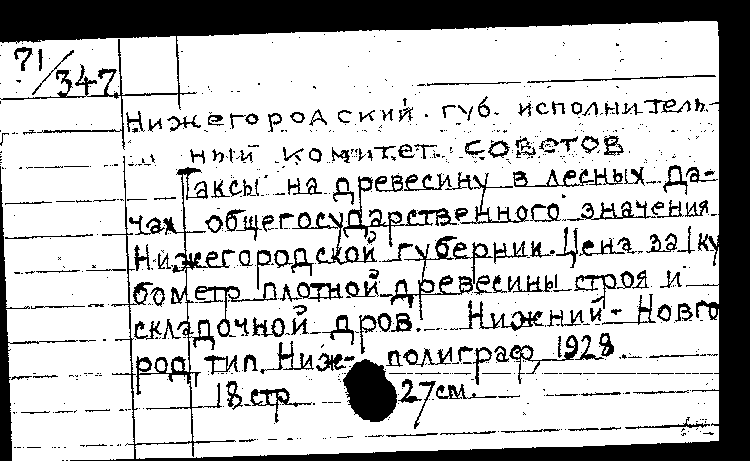 71/347.
Нижегородский. губ. исполнитель-
ный комитет советов
Таксы на древесину в лесных да-
чах общегосударственного значения
Нижегородской губернии. Цена за 1 ку
бометр плотной древесины строя и
складочной дров. Нижний-Новго
род, тип. Ниж-полиграф, 1928.
18 стр. 27 см.